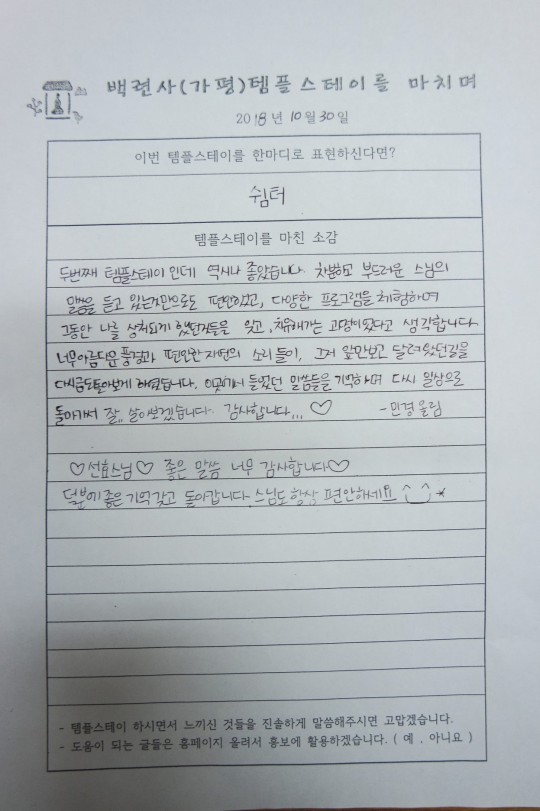 백련사(가평)템플스테이를 마치며
2018년 10월 30일
이번 템플스테이를 한마디로 표현하신다면?
쉼터
템플스테이를 마친 소감
두번째 템플스테이인데 역시나 좋았습니다. 차분하고 부드러운 스님의
말씀을 듣고 있는것만으로도 편안하였고, 다양한 프로그램을 체험하며
그동안 나를 상처되게 했던것들을 잊고, 치유해가는 과정이였다고 생각합니다.
너무아름다운 풍경과 편안한 자연의 소리들이, 그저 앞만보고 달려왔던길을
다시금되돌아보게 하였습니다. 이곳에서 들었던 말씀들을 기억하며 다시 일상으로
돌아가서 잘.. 살아보겠습니다. 감사합니다... ♡ -민경울림
♡선효스님♡ 좋은 말씀 너무 감사합니다♡
덕분에 좋은 기억갖고 돌아갑니다. 스님도 항상 편안하세요 ^_^*
- 템플스테이 하시면서 느끼신 것들을 진솔하게 말씀해주시면 고맙겠습니다.
- 도움이 되는 글들은 홈페이지 올려서 홍보에 활용하겠습니다. ( 예 , 아니요 )